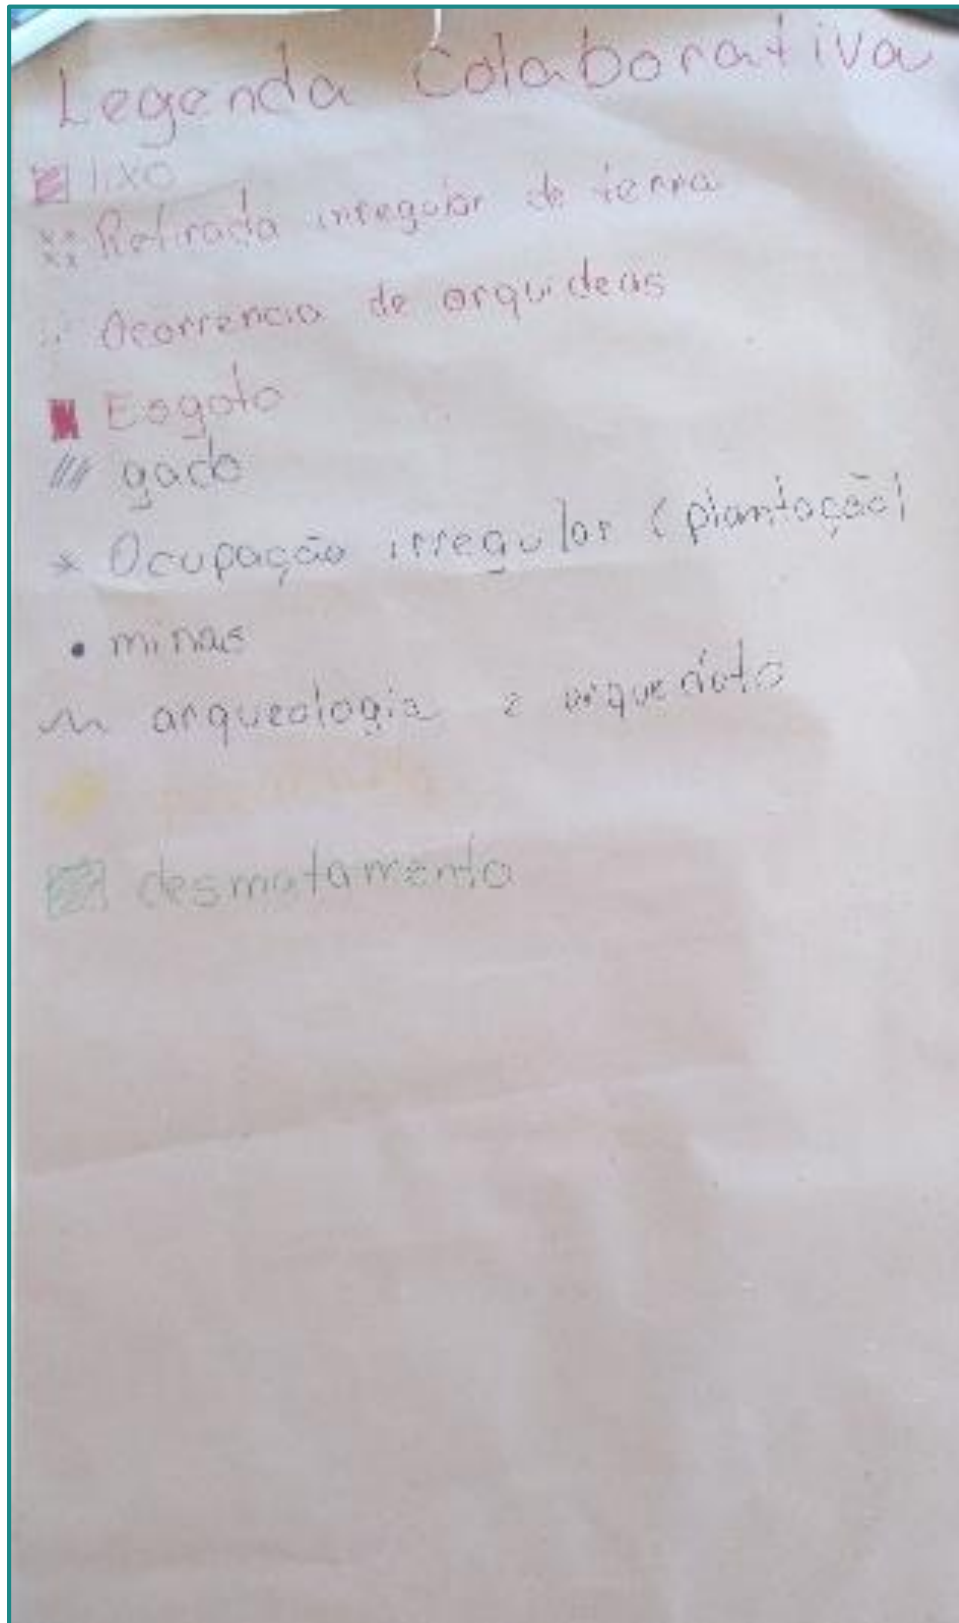 Legenda Colaborativa
lixo
Retirada irregular de terra
Ocorrencia de orquideas
Esgoto
gado
* Ocupação irregular (plantação)
• minas
arqueologia e arqueduto
desmatamento